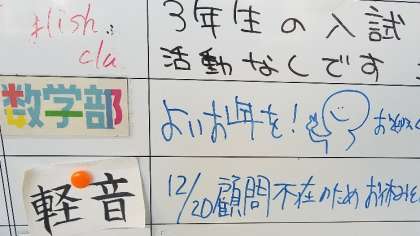 glish
cla
3年生の入試
活動なくです
数学部
よいお年を!
軽音
12/20顧問不在のためお休みで